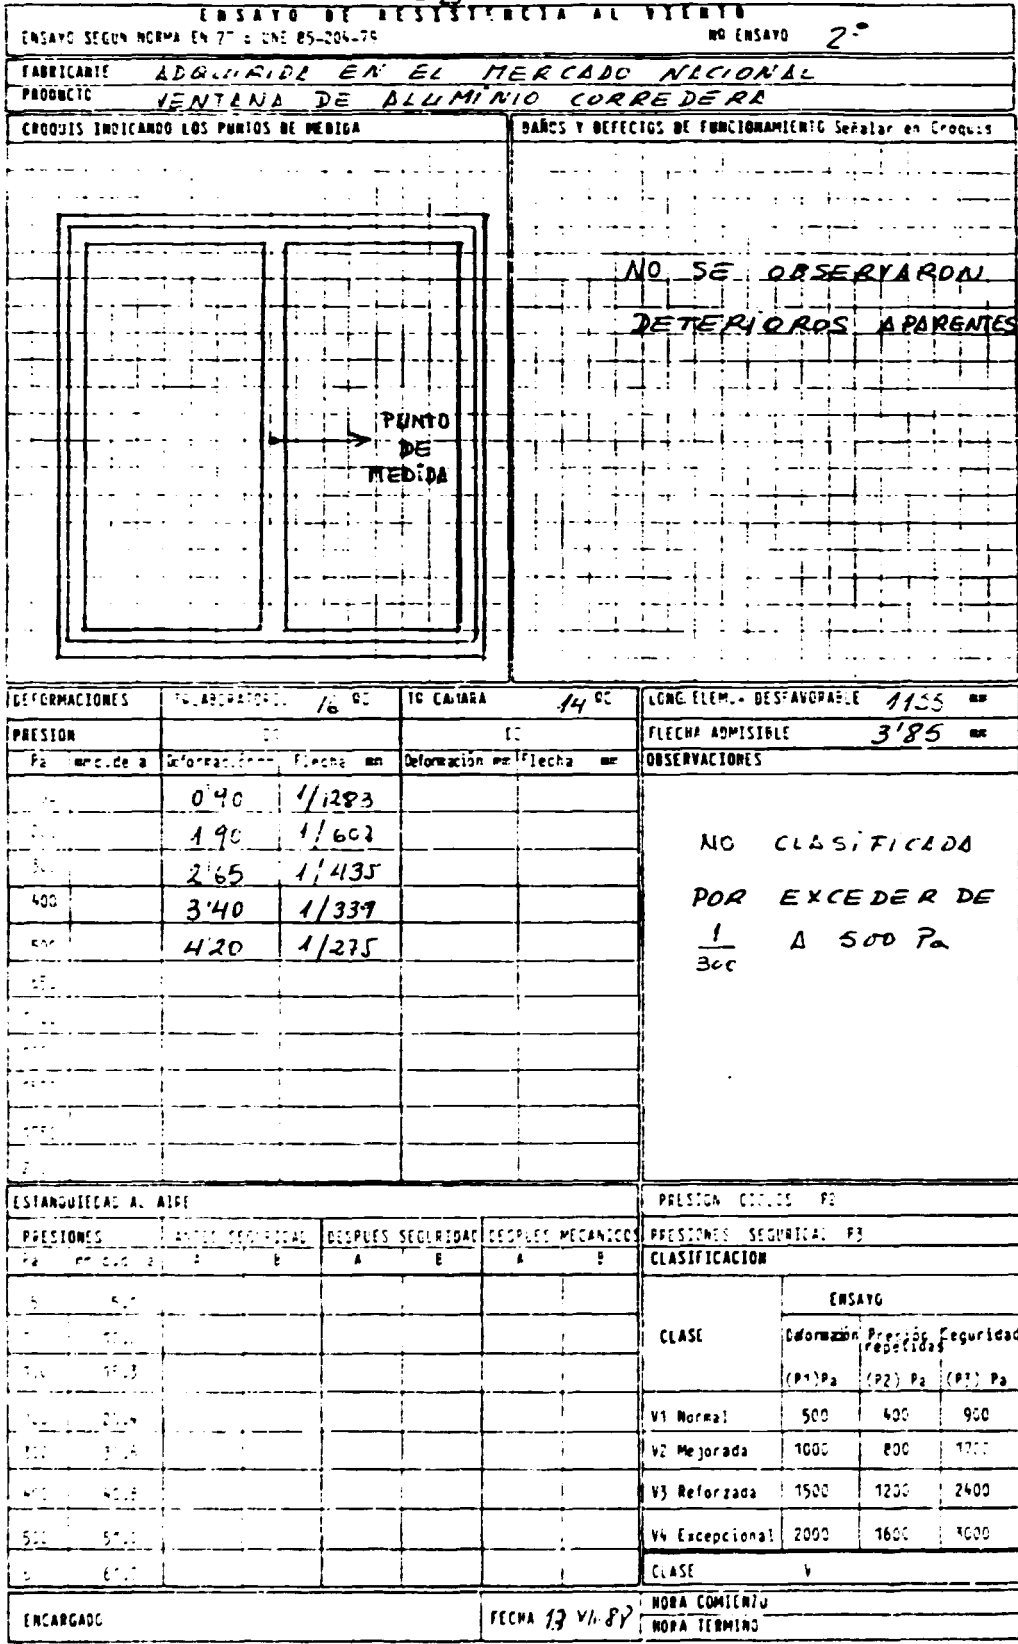 ENSAYO DE RESISTENCIA AL VIENTO
ENSAYO SEGUN NORMA EN 77 : UNE 85-204-79 Nº ENSAYO 2º
FABRICANTE ADQUIRIDA EN EL MERCADO NACIONAL
PRODUCTO VENTANA DE ALUMINIO CORREDERA
CROQUIS INDICANDO LOS PUNTOS DE MEDIDA
DAÑOS Y DEFECTOS DE FUNCIONAMIENTO Señalar en Croquis
NO SE OBSERVARON
DETERIOROS APARENTES
PUNTO
DE
MEDIDA
DEFORMACIONES Tº LABORATORIO 16 ºC Tº CAMARA 14 ºC
PRESION
Pa mm c.de a Deformación mm Flecha mm Deformación mm Flecha mm
0'90 1/1283
1'90 1/607
2'65 1/435
400 3'40 1/339
500 4'20 1/275
LONG. ELEM. DESFAVORABLE 1155 mm
FLECHA ADMISIBLE 3'85 mm
OBSERVACIONES
NO CLASIFICADA
POR EXCEDER DE
1/300 A 500 Pa
ESTANQUIEDAD AL AIRE
PRESIONES ANTES SEGURIDAD DESPUES SEGURIDAD DESPUES MECANICOS
Pa A B A B A B
500
PRESION CICLOS P2
PRESIONES SEGURIDAD P3
CLASIFICACION
ENSAYO
CLASE Deformación Presión repetidas Seguridad
(P1)Pa (P2) Pa (P3) Pa
V1 Normal 500 400 900
V2 Mejorada 1000 800 1700
V3 Reforzada 1500 1200 2400
V4 Excepcional 2000 1600 3000
CLASE V
ENCARGADO FECHA
HORA COMIENZO
HORA TERMINO